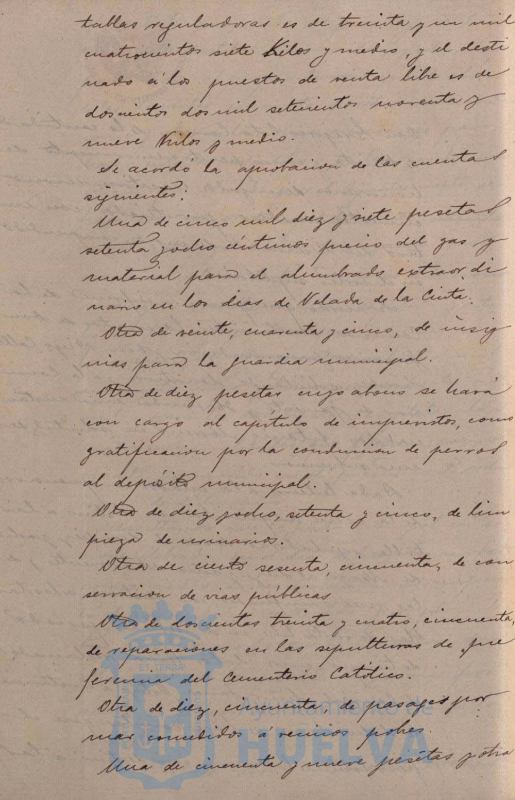 tablas reguladoras es de treinta y un mil
cuatrocientos siete Kilos y medio, y el desti
nado á los puestos de venta libre es de
doscientos dos mil setecientos noventa y
nueve Kilos y medio.
Se acordó la aprobacion de las cuentas
siguientes:
Una de cinco mil diez y siete pesetas
setenta y ocho centimos precio del gas y
material para el alumbrado extraordi
nario en los dias de Velada de la Cinta.
Otra de veinte, cuarenta y cinco, de insig
nias para la guardia municipal.
Otra de diez pesetas cuyo abono se hará
con cargo al capítulo de imprevistos, como
gratificacion por la conduccion de perros
al depósito municipal.
Otra de diez y ocho, setenta y cinco, de lim
pieza de urinarios.
Otra de ciento sesenta, cincuenta, de con
servacion de vias públicas
Otra de doscientas treinta y cuatro, cincuenta,
de reparaciones en las sepulturas de pre
ferencia del Cementerio Católico.
Otra de diez, cincuenta, de pasages por
mar concedidos á vecinos pobres.
Una de cincuenta y nueve pesetas y otra
Ayuntamiento de
HUELVA